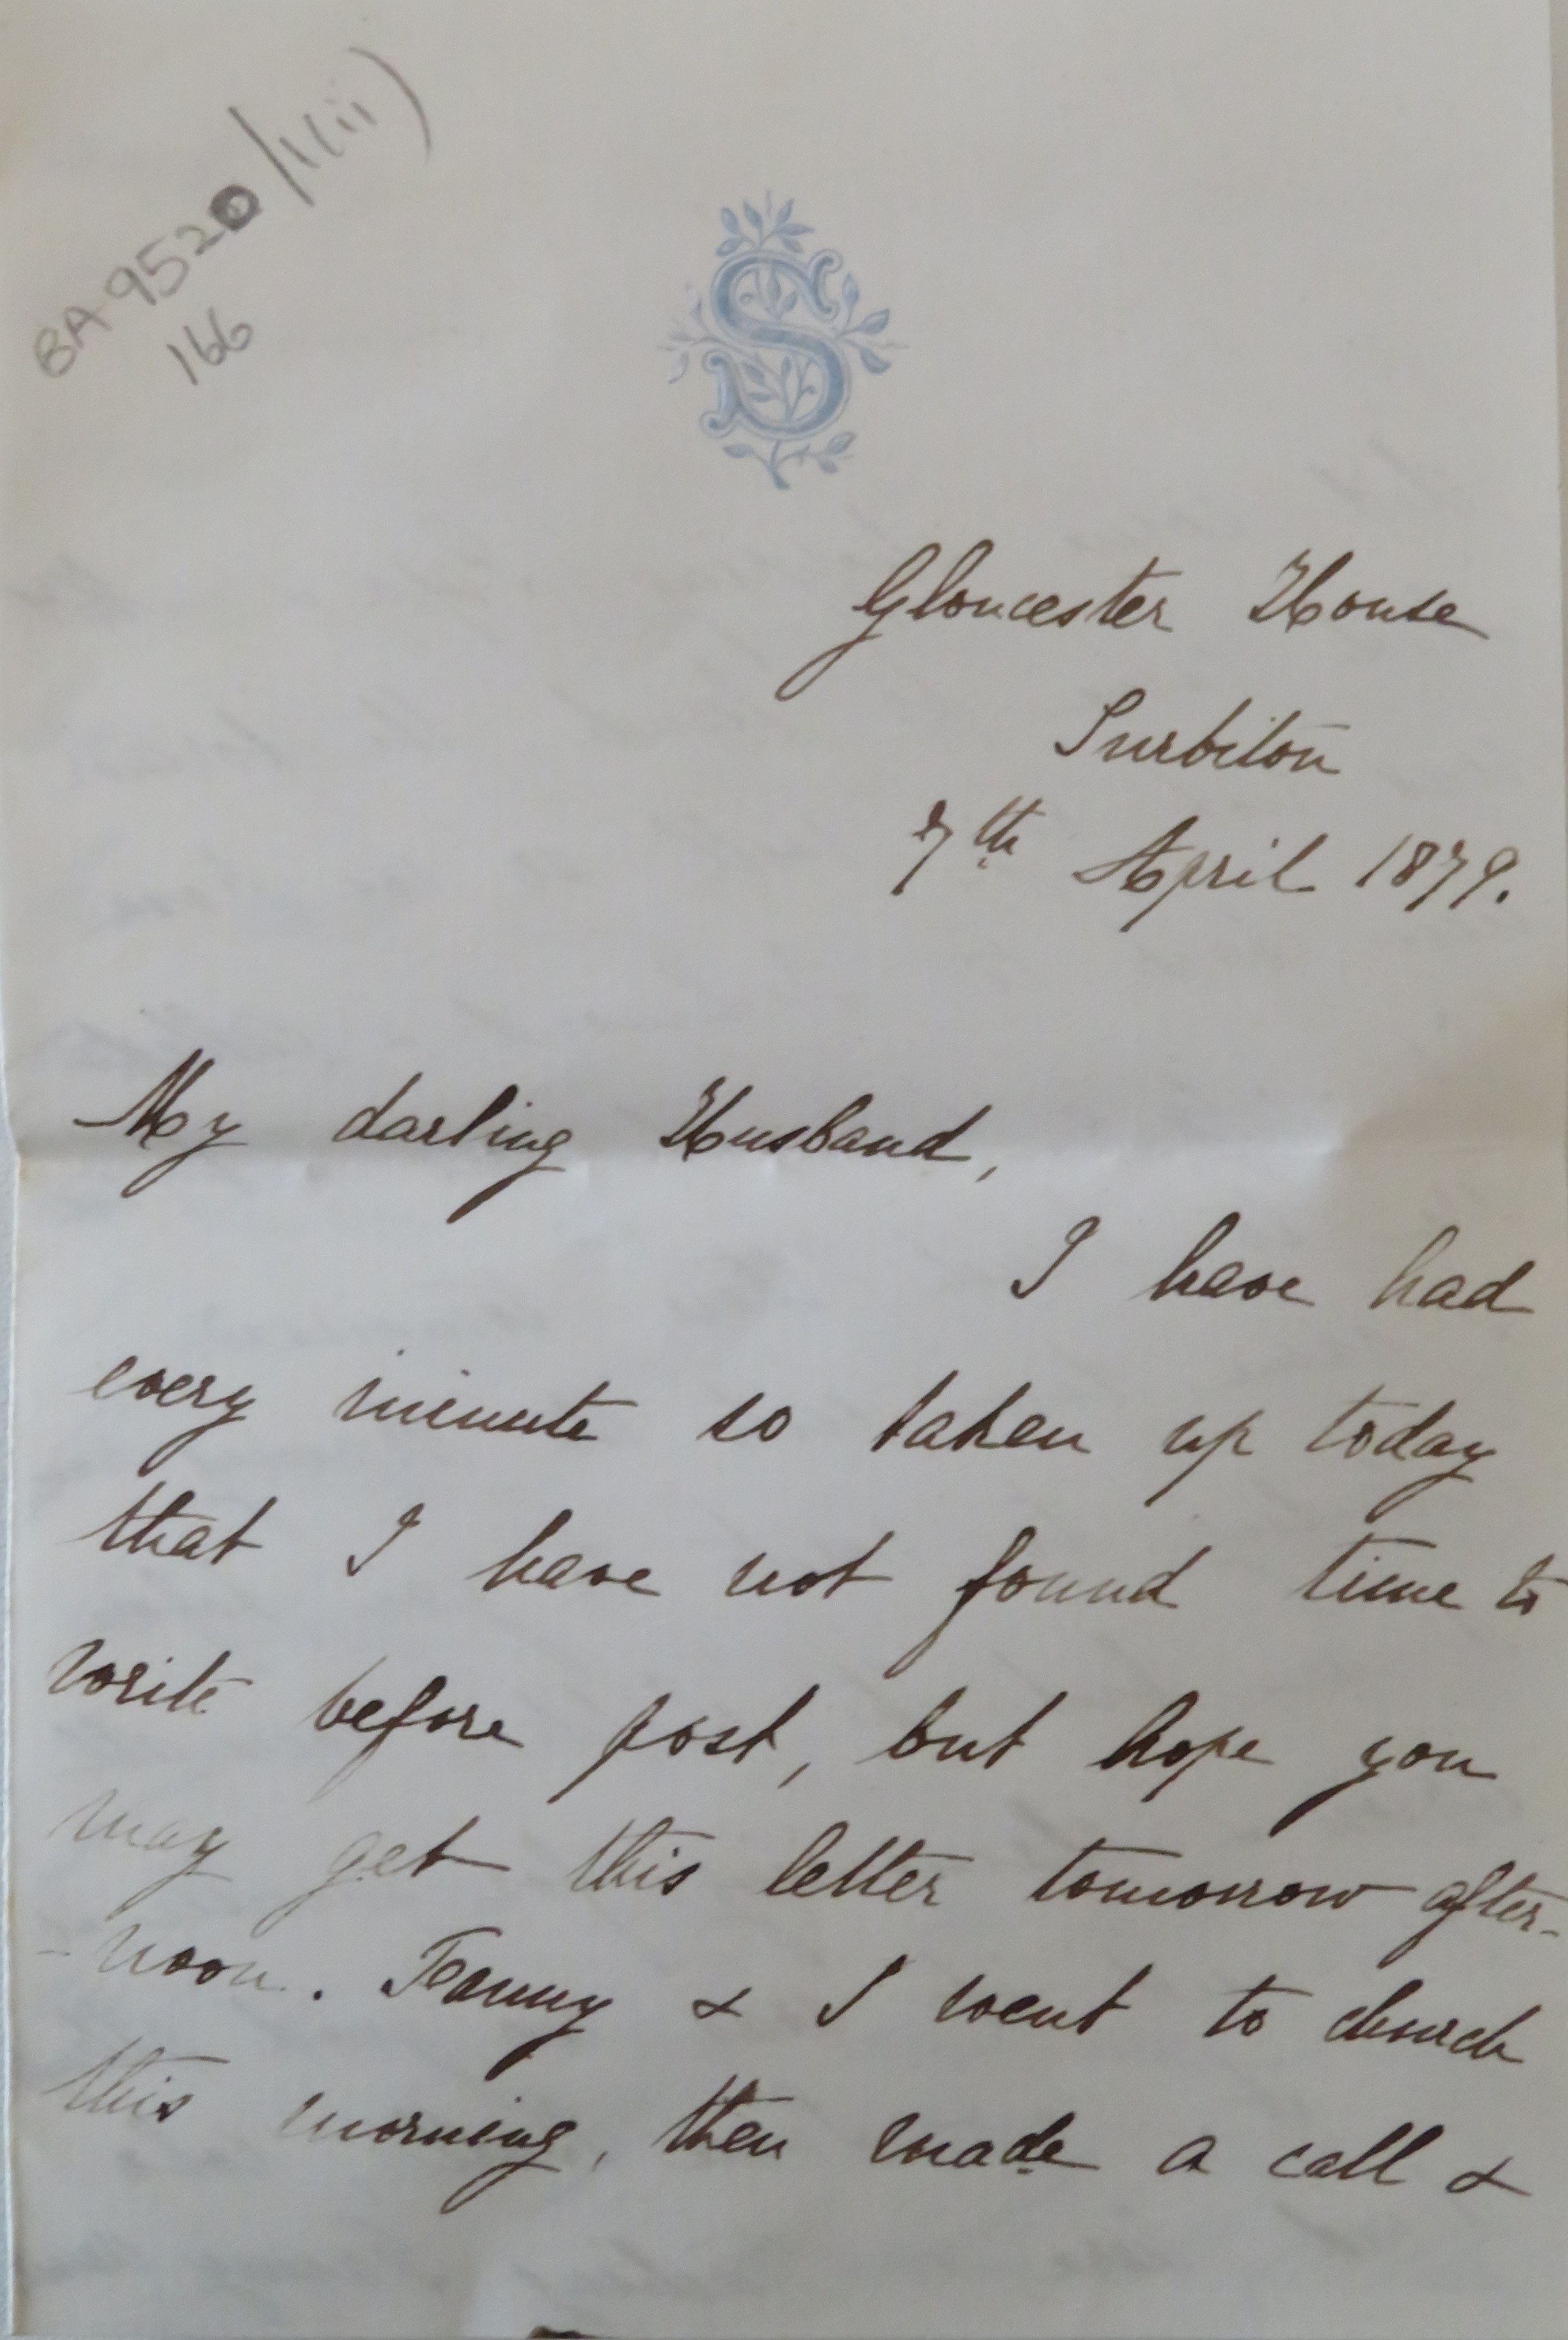 BA 9520/1(ii)
166
S
Gloucester House
Surbiton
7th April 1879.
My darling Husband,
I have had
every minute so taken up today
that I have not found time to
write before post, but hope you
may get this letter tomorrow after-
-noon. Fanny & I went to church
this morning, then made a call &